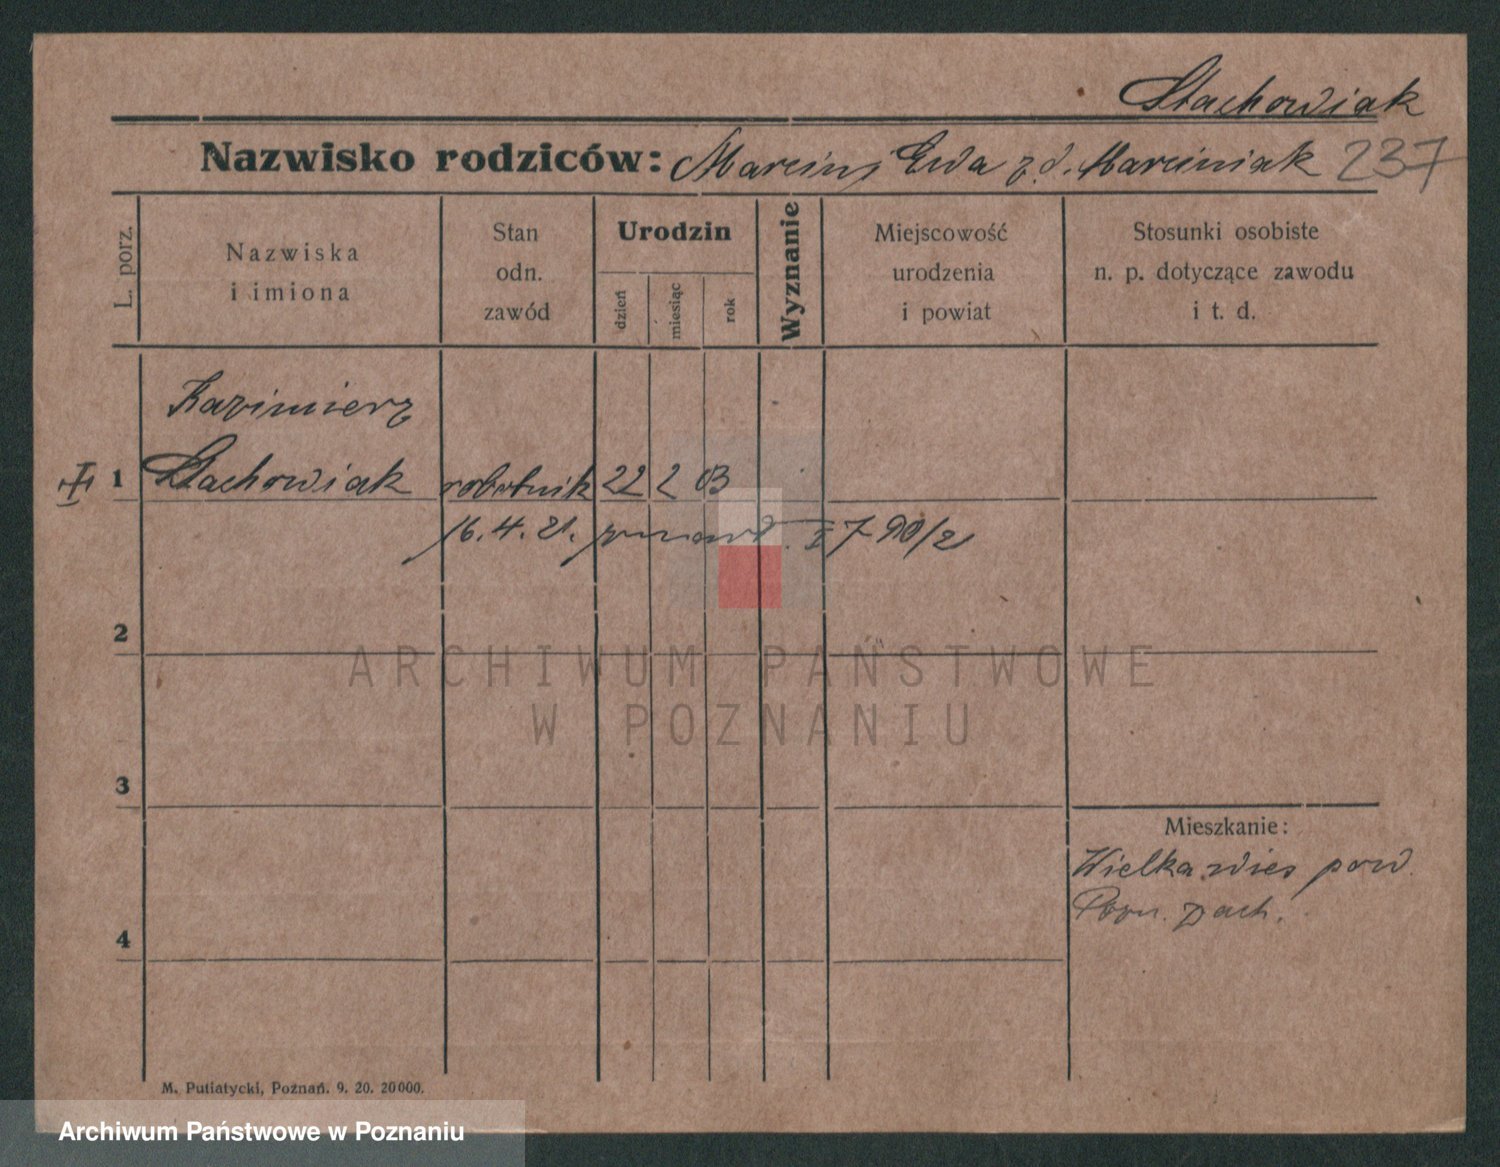 Stachowiak
Nazwisko rodziców: Marcin, Ewa z d. Marciniak 237
L. porz.
Nazwiska
i imiona
Stan
odn.
zawód
Urodzin
dzień
miesiąc
rok
Wyznanie
Miejscowość
urodzenia
i powiat
Stosunki osobiste
n. p. dotyczące zawodu
i t. d.
Kazimierz
1 Stachowiak robotnik 22 2 03
16. 4. 21.
2
ARCHIWUM PAŃSTWOWE
W POZNANIU
3
Mieszkanie:
Wielka wies pow.
Pozn. zach.
4
M. Putiatycki, Poznań. 9. 20. 20000.
Archiwum Państwowe w Poznaniu